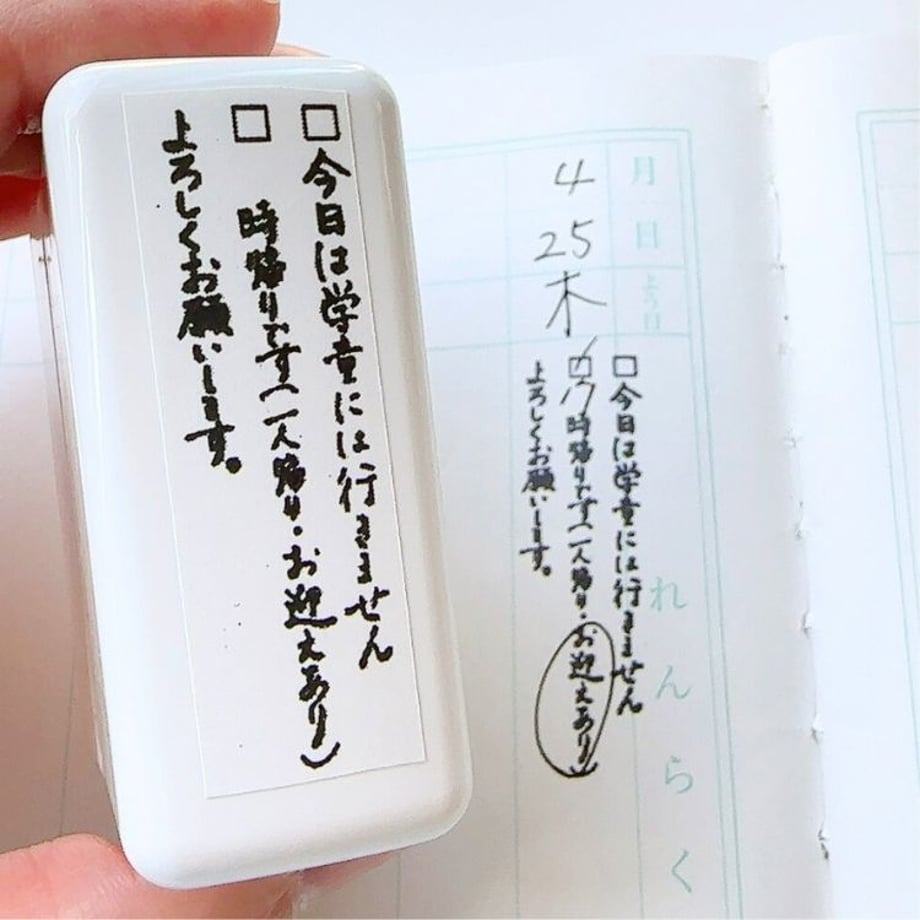 □今日は学童には行きません
□　時帰りです(一人帰り・お迎えあり)
よろしくお願いします。
月 日 よう日
4 25 木
れんらく
□今日は学童には行きません
☑17時帰りです(一人帰り・お迎えあり)
よろしくお願いします。